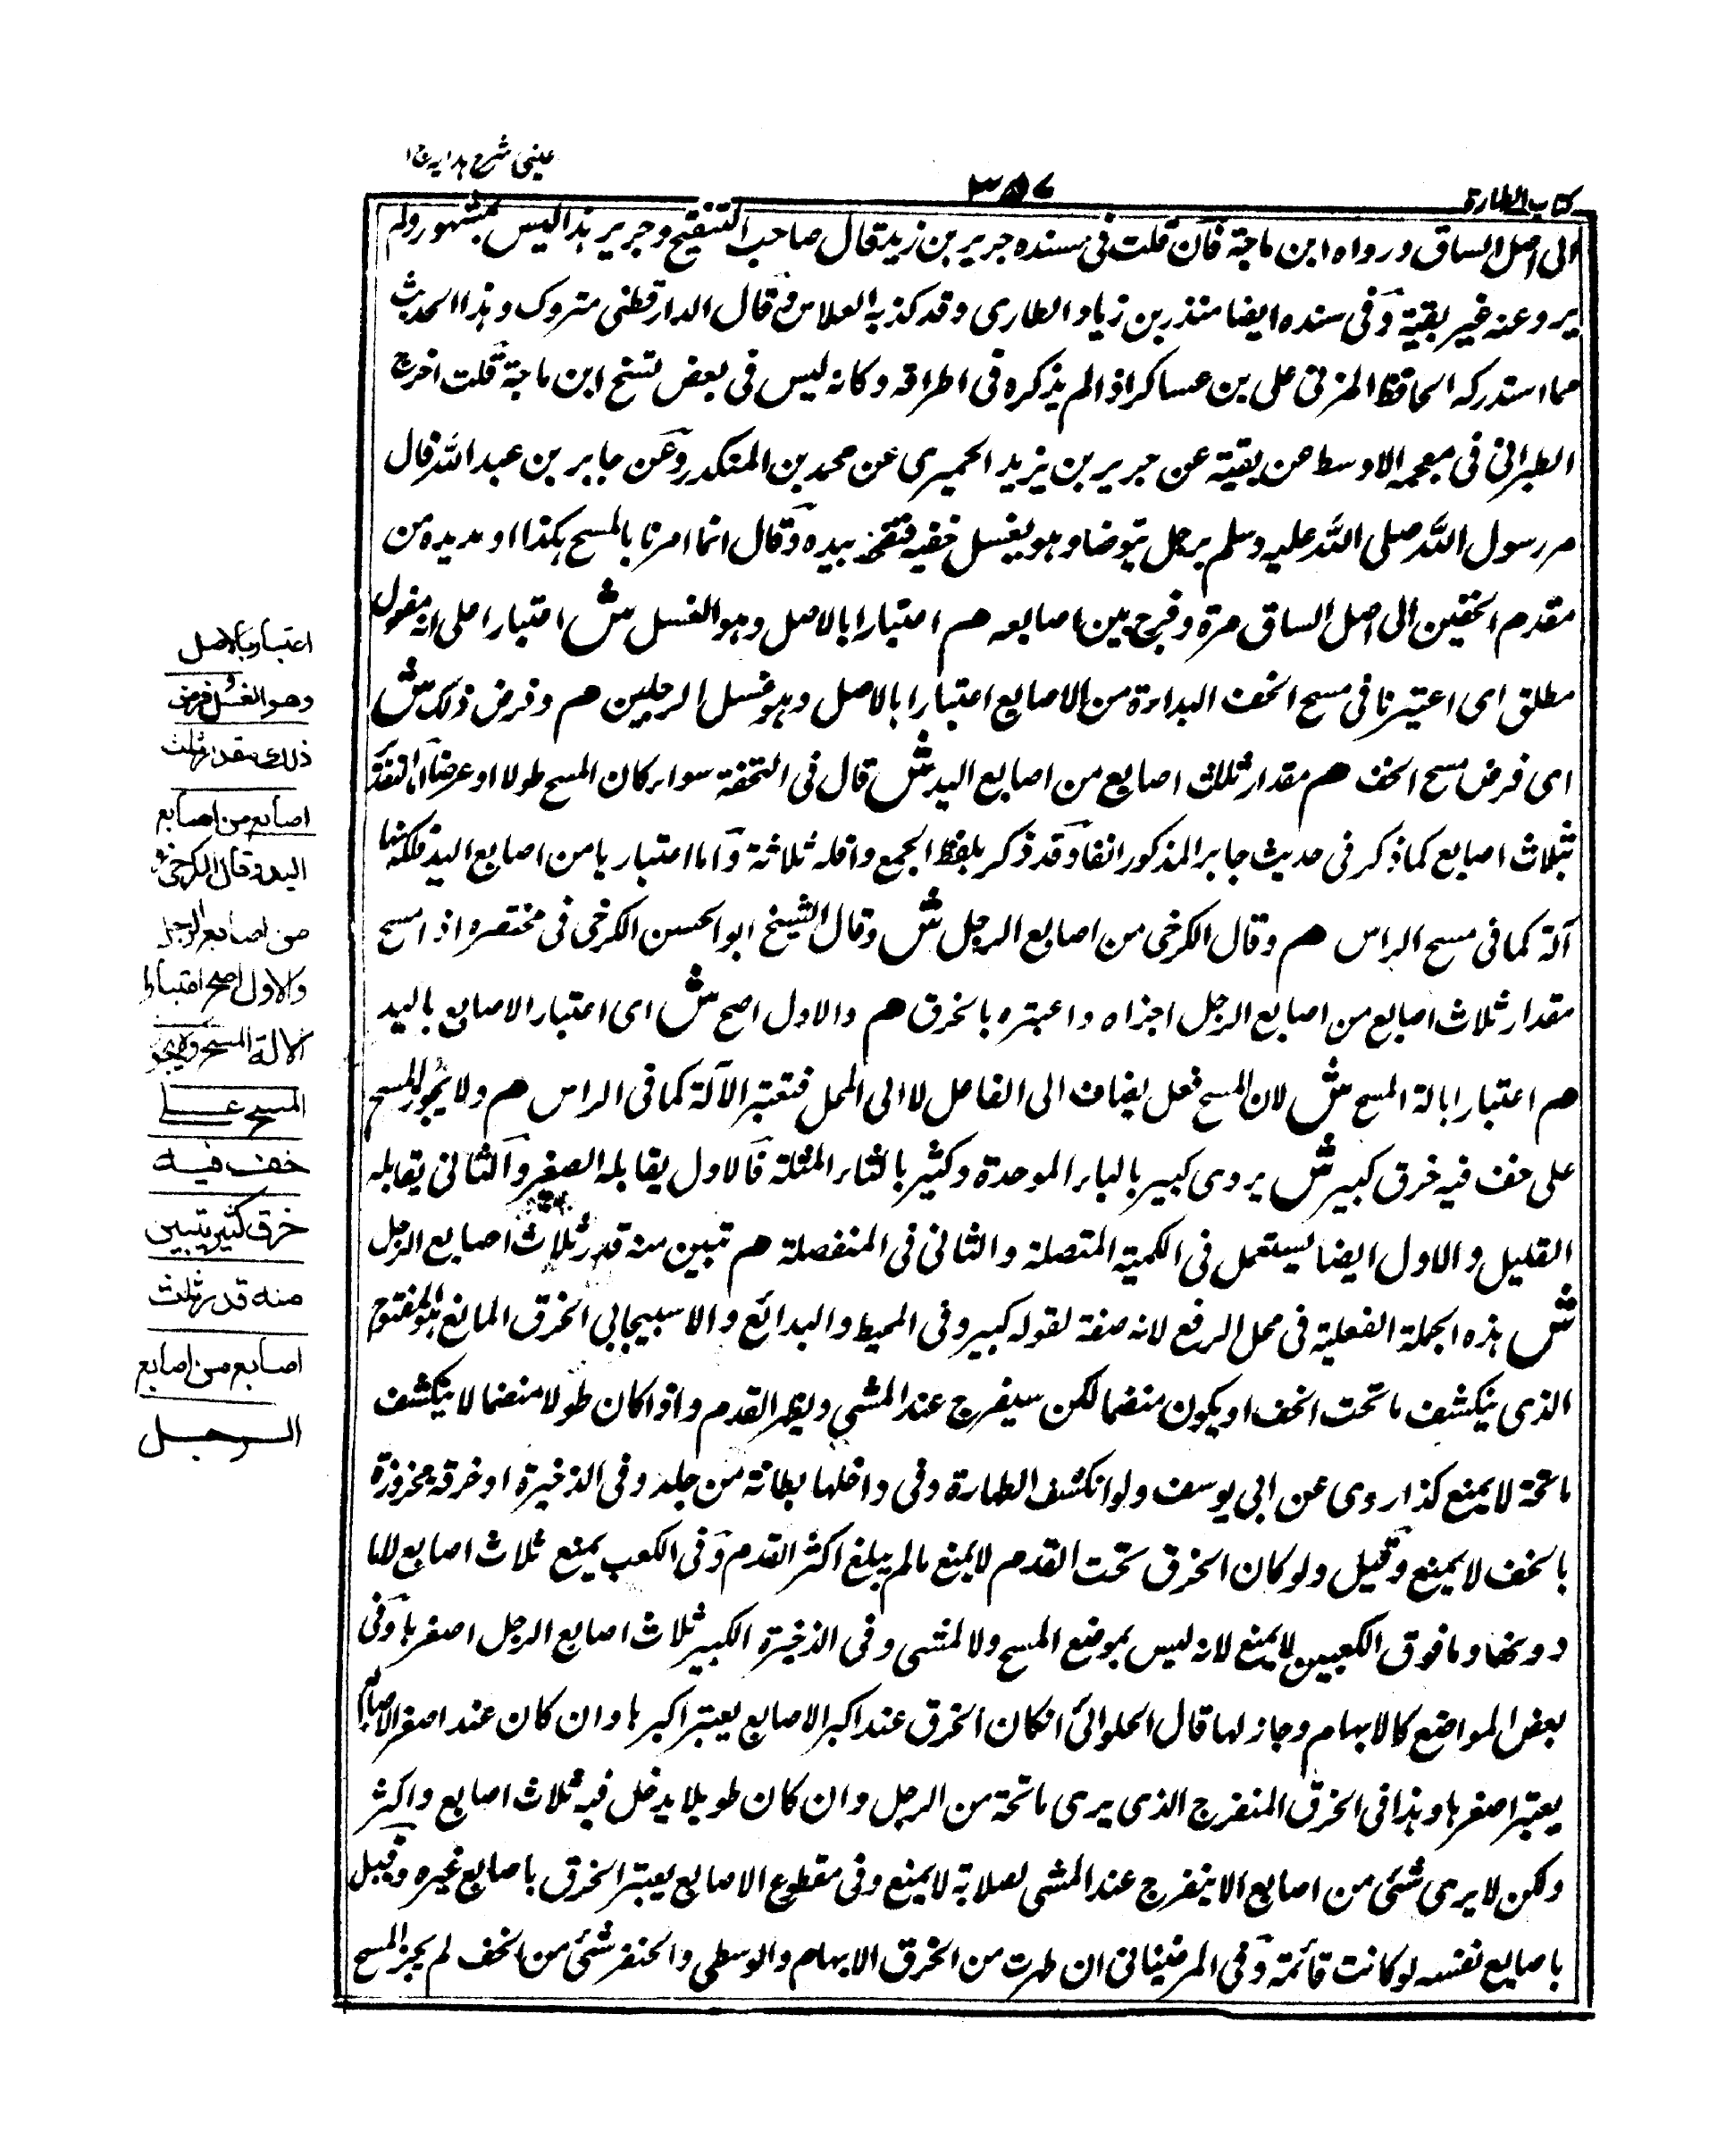 عینی شرح هدایه ج۱
۳۵۷
کتاب الطهارة
الی اصل الساق و رواه ابن ماجة فان قلت فی سنده جریر بن زید قال صاحب التنقیح و جریر هذا لیس بمشهور ولم
یرو عنه غیر بقیة و فی سنده ایضا منذر بن زیاد الطاری وقد کذبه الفلاس و قال الدارقطنی متروک و هذا الحدیث
مما استدرکه الحافظ المزنی علی بن عساکر اذا لم یذکره فی اطرافه وکانه لیس فی بعض نسخ ابن ماجة قلت اخرج
الطبرانی فی معجمه الاوسط عن بقیة عن جریر بن یزید الحمیری عن محمد بن المنکدر وعن جابر بن عبد الله قال
مر رسول الله صلی الله علیه وسلم برجل یتوضا وهو یغسل خفیه بیده وقال انما امرنا بالمسح هکذا او مد یده من
مقدم الخفین الی اصل الساق مرة و فرج بین اصابعه م اعتبارا بالاصل وهو الغسل ش اعتبارا علی انه مفعول
مطلق ای اعتبرنا فی مسح الخف البداءة من الاصابع اعتبارا بالاصل وهو غسل الرجلین م و فرض ذلک ش
ای فرض مسح الخف م مقدار ثلاث اصابع من اصابع الید ش قال فی التحفة سواء کان المسح طولا او عرضا اما التقدیر
بثلاث اصابع کما ذکر فی حدیث جابر المذکور انفا وقد ذکر بلفظ الجمع واقله ثلاثة و اما اعتبارها من اصابع الید فلکونها
آلة کما فی مسح الراس م وقال الکرخی من اصابع الرجل ش وقال الشیخ ابو الحسن الکرخی فی مختصره اذا مسح
مقدار ثلاث اصابع من اصابع الرجل اجزاه واعبتره بالخرق م والاول اصح ش ای اعتبار الاصابع بالید
م اعتبارا بالة المسح ش لان المسح فعل یضاف الی الفاعل لا الی المحل فتعتبر الآلة کما فی الراس م ولا یجوز المسح
علی خف فیه خرق کبیر ش یروی کبیر بالباء الموحدة و کثیر بالثاء المثلثة فالاول یقابله الصغیر و الثانی یقابله
القلیل و الاول ایضا یستعمل فی الکمیة المتصلة و الثانی فی المنفصلة م تبین منه قدر ثلاث اصابع الرجل
ش هذه الجملة الفعلیة فی محل الرفع لانه صفة لقوله کبیر و فی المحیط و البدائع و الاسبیجابی الخرق المانع هو المفتوح
الذی ینکشف ما تحت الخف او یکون منضما لکن سیفرج عند المشی و یظهر القدم و اذا کان طولا منضما لا ینکشف
ما تحته لا یمنع کذا روی عن ابی یوسف و لو انکشف الطهارة و فی داخلها بطانة من جلد و فی الذخیرة او خرقة مخروزة
بالخف لا یمنع و قیل و لو کان الخرق تحت القدم لا یمنع مالم یبلغ اکثر القدم و فی الکعب یمنع ثلاث اصابع لا ما
دونها و ما فوق الکعبین لا یمنع لانه لیس بموضع المسح ولا لمشی و فی الذخیرة الکبیر ثلاث اصابع الرجل اصغرها و فی
بعض المواضع کالابهام و جاز لها قال الحلوائی ان کان الخرق عند اکبر الاصابع یعتبر اکبرها و ان کان عند اصغر الاصابع
یعتبر اصغرها و هذا فی الخرق المنفرج الذی یری ما تحته من الرجل و ان کان طویلا یدخل فیه ثلاث اصابع و اکثر
ولکن لا یری شئ من اصابع الا ینفرج عند المشی لصلابة لا یمنع و فی مقطوع الاصابع یعتبر الخرق باصابع غیره و قیل
باصابع نفسه لو کانت قائمة و فی المرغینانی ان ظهرت من الخرق الابهام و الوسطی و الخنصر شئ من الخف لم یجز المسح
اعتبارا بالاصل
وهو الغسل و فرض
ذلک مقدار ثلث
اصابع من اصابع
الید و قال الکرخی
من اصابع الرجل
والاول اصح اعتبارا
لآلة المسح ولا یجوز
المسح علی
خف فیه
خرق کثیر یتبین
منه قدر ثلث
اصابع من اصابع
الرجل